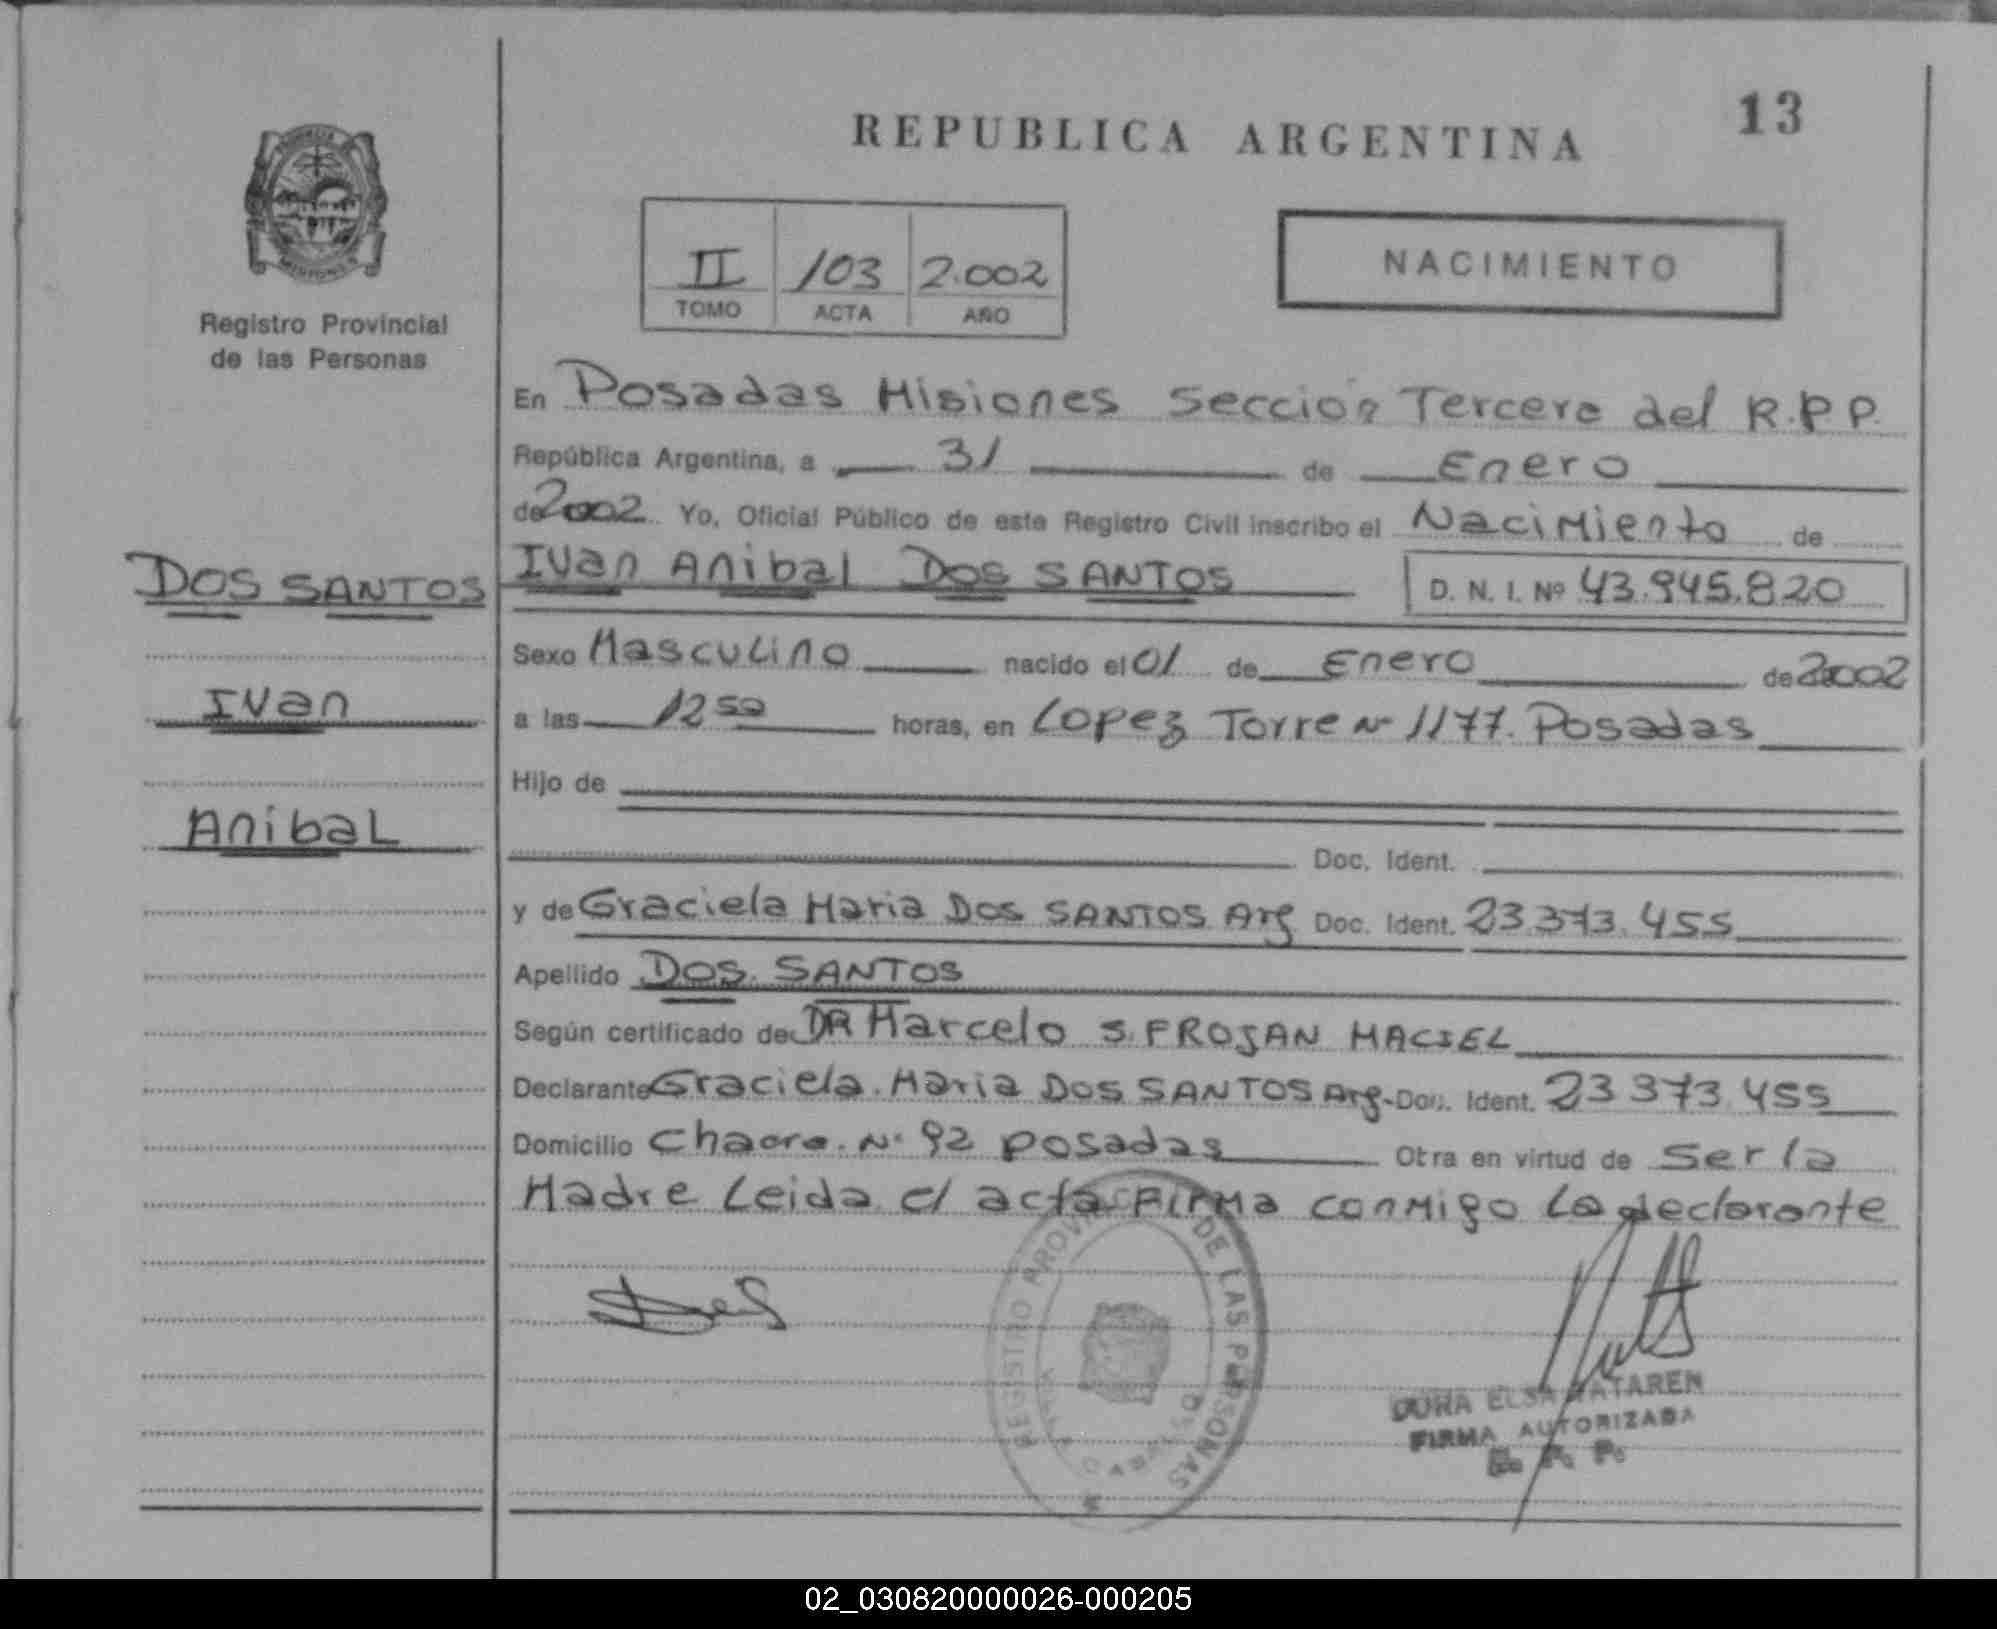 REPUBLICA ARGENTINA
13
II 103 2.002
TOMO ACTA AÑO
NACIMIENTO
Registro Provincial
de las Personas
En Posadas Misiones Sección Tercera del R.P.P.
República Argentina, a 31 de Enero
de 2002 Yo, Oficial Público de este Registro Civil inscribo el Nacimiento de
DOS SANTOS
Ivan Anibal DOS SANTOS D. N. I. Nº 43.945.820
Sexo Masculino nacido el 01 de Enero de 2002
Ivan
a las 12 50 horas, en Lopez Torre Nº 1177. Posadas
Hijo de
Anibal
Doc. Ident.
y de Graciela Maria DOS SANTOS Arg Doc. Ident. 23.373.455
Apellido DOS SANTOS
Según certificado de DR Marcelo S. FROJAN MACIEL
Declarante Graciela Maria DOS SANTOS Arg. Doc. Ident. 23 373 455
Domicilio Chacra Nº 92 posadas Otra en virtud de Ser la
Madre Leida el acta FIRMA conmigo La declarante
REGISTRO PROVINCIAL DE LAS PERSONAS
FIRMA AUTORIZADA
02_030820000026-000205